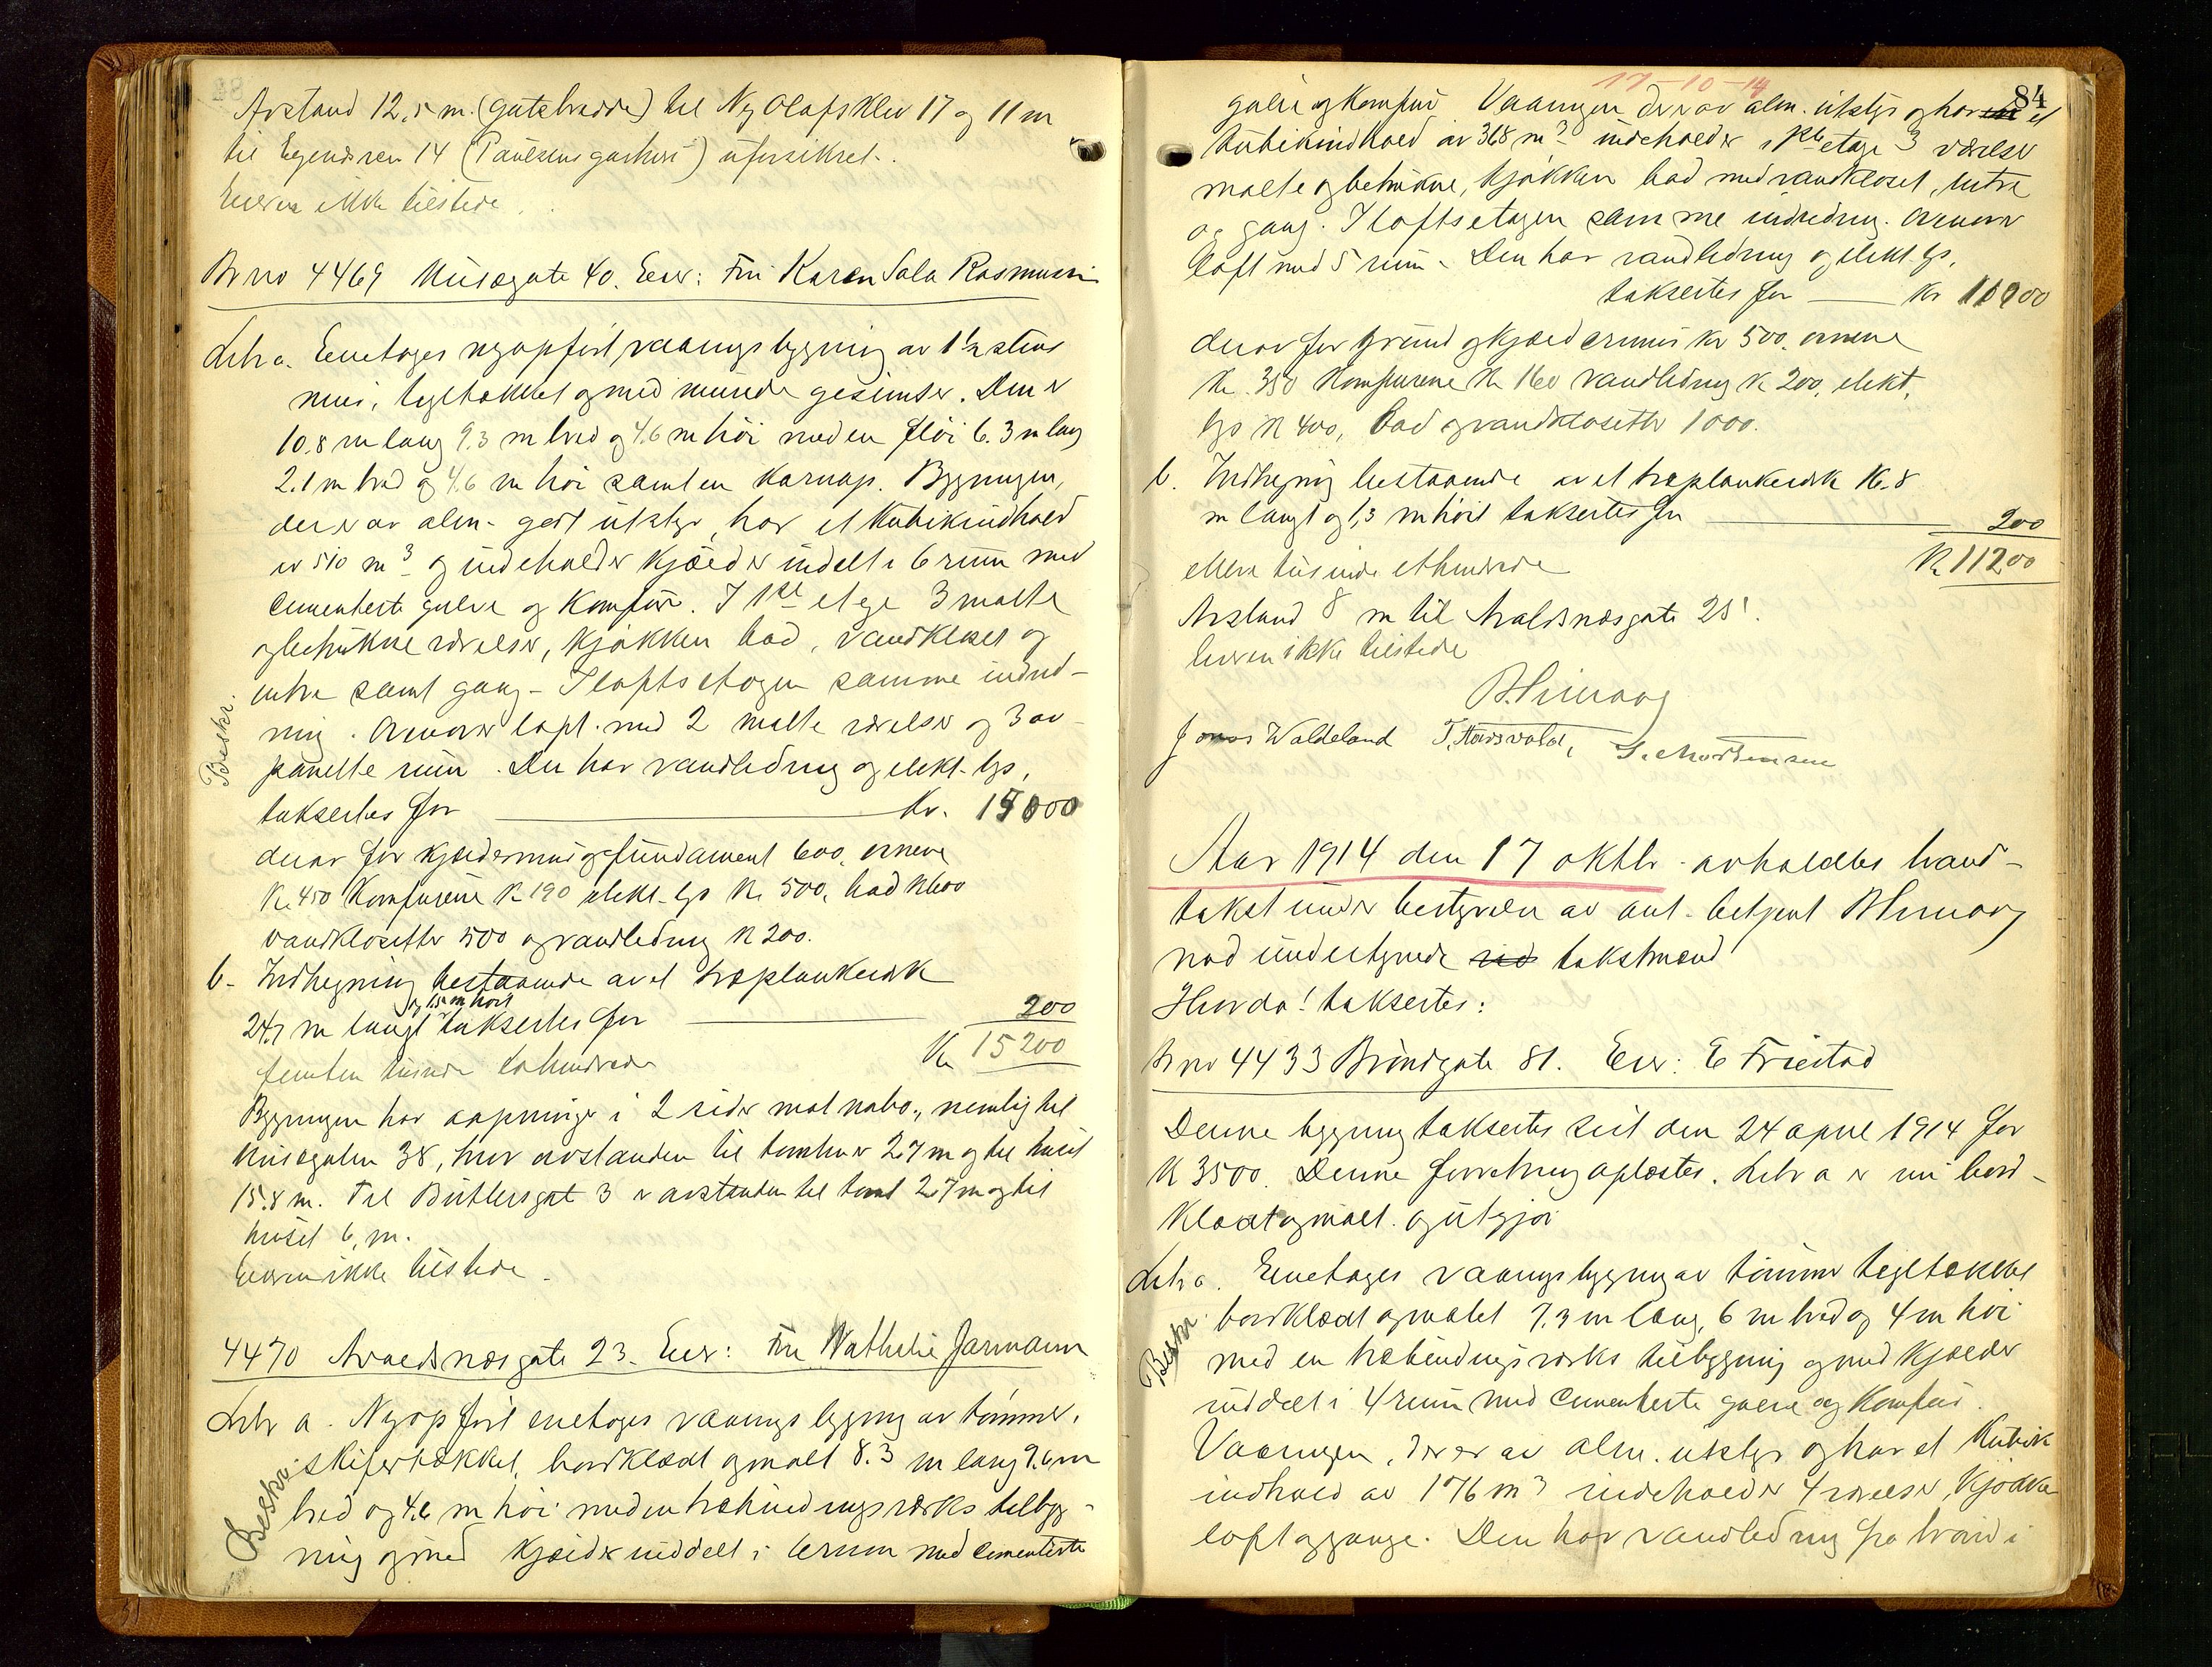 Avstand 12,5 m. (gatebredde) til Ny Olafsklev 17 og 11 m
til Eiendommen 14 (Paulsens gaard) uforsikret.
Eieren ikke tilstede.
Br no 4469 Musægate 40. Eier: Fru Karen Sala Rasmussen
Litr a. Enetages nyopført vaaningsbygning av 1½ stens
mur, tegltækket og med murede gesimser. Den er
10.8 m lang 9.3 m bred og 4.6 m høi med en fløi 6.3 m lang
2.1 m bred og 4.6 m høi samt en karnap. Bygningen,
der er av alm. godt utstyr, har et kubikindhold
av 510 m³ og indeholder kjælder inddelt i 6 rum med
cementerte gulve og komfur. I 1ste etage 3 malte
og betrukne værelser, kjøkken bad, vandkloset og
entre samt gang. I loftsetagen samme indred-
ning. Øverste loft med 2 malte værelser og 3 av-
panelte rum. Den har vandledning og elekt. lys,
Beskr.
takseres for Kr. 15000
derav for kjældermur og fundament 600, ovnene
Kr. 450 Komfurene Kr 190 elekt. lys Kr 500, bad Kr 600
vandklosetter 500 og vandledning Kr 200.
b. Indhegning bestaaende av et træplankeværk
og 1.5 m høit
24.7 m langt takseres for 200
femten tusinde tohundrede Kr 15200
Bygningen har aapninger i 2 sider mot nabo, nemlig til
Musægaten 38, hvor avstanden til tomten er 2.7 m og til huset
15.8 m. Til Butlersgt 3 er avstanden til tomt 2.7 m og til
huset 6 m.
Eieren ikke tilstede.
4470 Avaldsnæsgate 23. Eier: Fru Nathalie Jarmann
Litr a. Nyopført enetages vaaningsbygning av tømmer,
skifertækket, bordklædt og malt 8.3 m lang 9.6 m
bred og 4.6 m høi med en træbindingsværks tilbyg-
Beskr.
ning og med kjælder inddelt i 6 rum med cementerte
17-10-14
84
gulve og komfur. Vaaningen der er av alm. utstyr og har et
kubikindhold av 368 m³ indeholder i 1ste etage 3 værelser
malte og betrukne, kjøkken bad med vandkloset, entre
og gang. I loftsetagen samme indredning. Øverste
loft med 5 rum. Den har vandledning og elekt. lys,
takseres for Kr 11000
derav for grund og kjældermur kr 500, ovnene
Kr. 350 Komfurene Kr 160 vandledning Kr 200, elekt.
lys Kr 400, bad og vandklosetter 1000.
b. Indhegning bestaaende av et træplankeværk 16.8
m langt og 1,3 m høit takseres for 200
elleve tusinde ethundrede Kr 11200
Avstand 8 m til Avaldsnæsgate 25.
Eieren ikke tilstede
Jonas Waldeland T. Hausvold, S. Mortensen
Aar 1914 den 17 oktbr. avholdtes brand-
takst under bestyrelse av aut. betjent
med undertegnede takstmænd
Hvorda! takseres:
Br no 4433 Brøndgate 81. Eier: E Friestad
Denne bygning takseres sist den 24 april 1914 for
Kr 3500. Denne forretning oplæstes. Litr a er nu bord-
klædt og malt og utgjør
Litr a. Enetages vaaningsbygning av tømmer tegltækket
bordklædt og malet 7.3 m lang, 6 m bred og 4 m høi
Beskr.
med en træbindingsværks tilbygning og med kjælder
inddelt i 4 rum med cementerte gulve og komfur.
Vaaningen, der er av alm. utstyr og har et kubik
indhold av 176 m³ indeholder 4 værelser, kjøkken
loft og gange. Den har vandledning fra brønd i